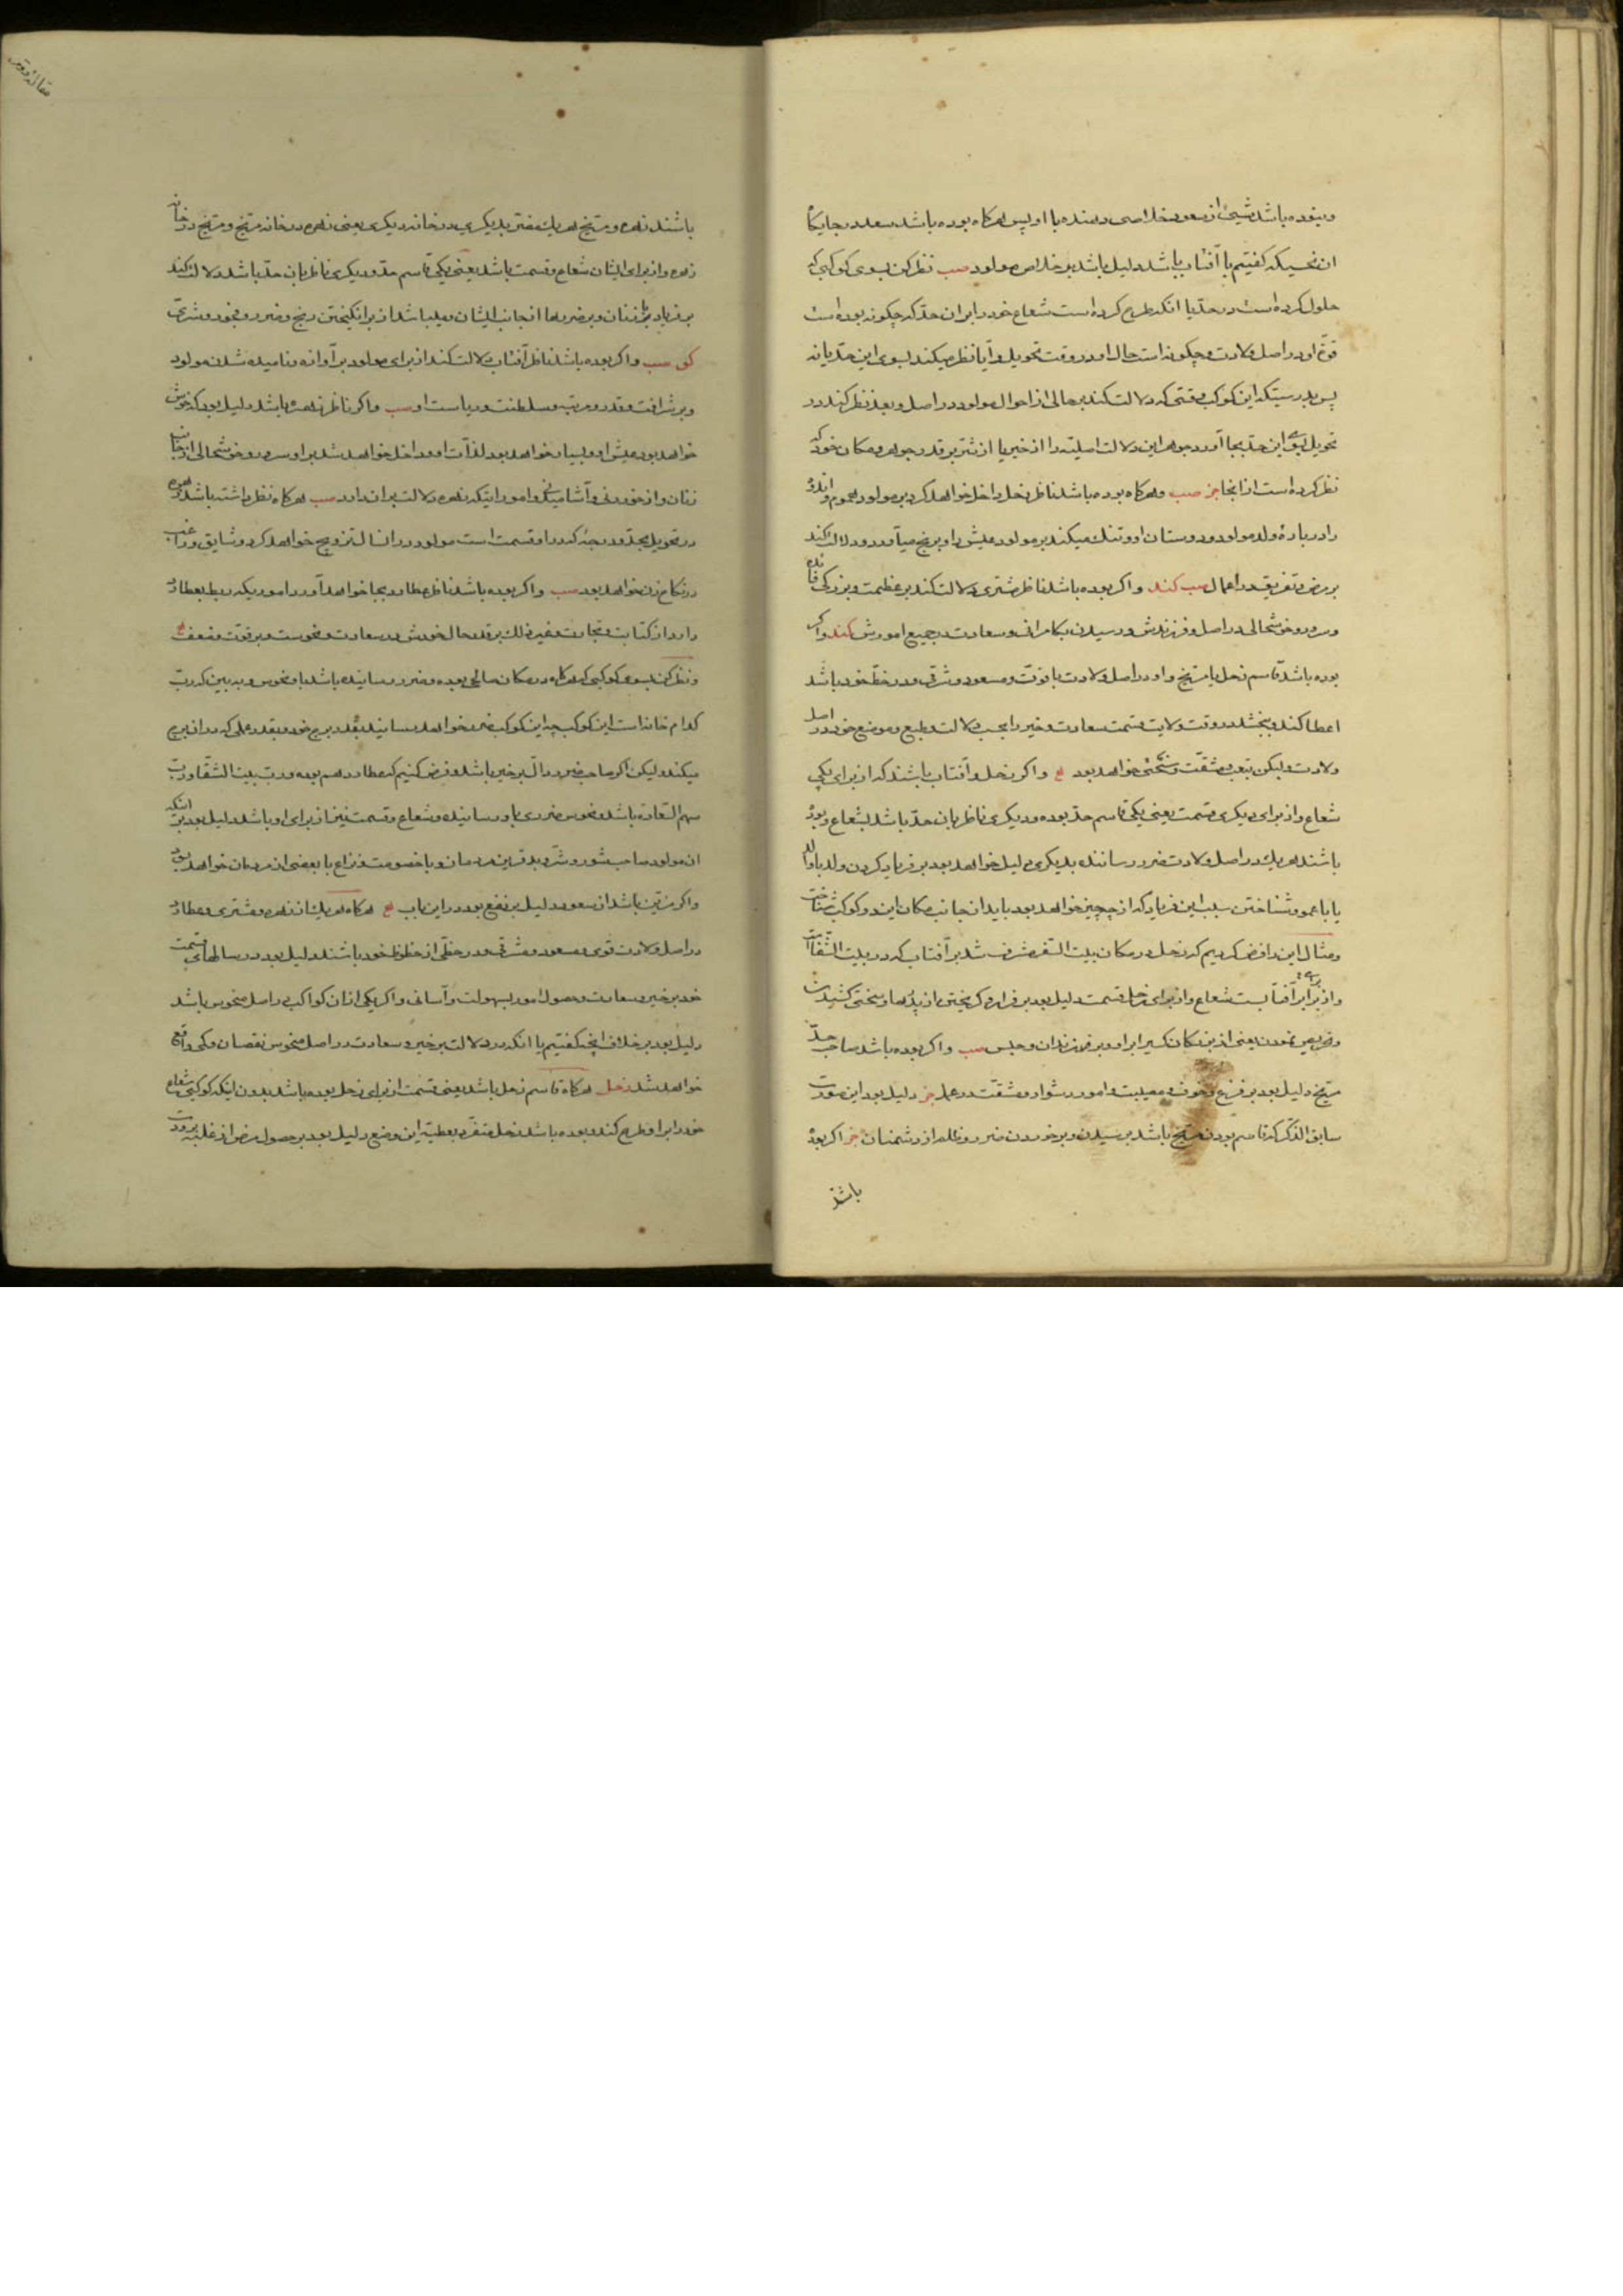 ونبوده باشد شیئ از سعود خلاصی دهنده با او پس هرکاه بوده باشد سعد در جایکاه
ان نحسیکه کفتیم با آفتاب باشد دلیل باشد بر خلاص مولود صب نظر کن بسوی کوکبی که
حلول کرده است در حد یا انکه طرح کرده است شعاع خود را بران حد که چکونه بوده است
قوة او در اصل ولادت و چکونه است حال او در وقت تحویل و آیا نظر میکند بسوی این حد یا نه
پس بدرستیکه این کوکب وقتی که دلالت کند بر حالی از احوال مولود در اصل و بعد نظر کند در
تحویل بسوی این حد بجا آورد جوهر این دلالت اصلیه را از خیر یا از شر بر قدر جوهر و مکان خود که
نظر کرده است از انجا جز صب و هرکاه بوده باشد ناظر زحل داخل خواهد کرد بر مولود هموم و اندوه
را در بارهٔ ولد مولود و دوستان او و تنک میکند بر مولود عیش را و برنج میآورد و دلالت کند
بر مرض و تفریق در اعمال صب کند و اکر بوده باشد ناظر مشتری دلالت کند بر عظمت و بزرکی
و سرور و خوشحالی در اصل و فرزندش و رسیدن بکامرانی و سعادت در جمیع امورش کند و اکر
بوده باشد قاسم زحل یا مریخ و او در اصل ولادت با قوت و مسعود و شرقی و در حظ خود باشد
اعطا کند و بخشد در وقت ولایت قسمت سعادت و خیر را بحسب دلالت و طبع و موضع خود در اصل
ولادت ولیکن بتعب و مشقت و سختی خواهد بود و اکر زحل و آفتاب باشند که از برای یکی
شعاع و از برای دیکری قسمت یعنی یکی قاسم حد بوده و دیکری ناظر بان حد باشد بشعاع و بوده
باشند هریک در اصل ولادت ضرر رساننده بدیکری دلیل خواهد بود بر فریاد کردن ولد با والد
یا با عمو و شناختن سبب این فریاد که از چه چیز خواهد بود باید از جانب مکان این دو کوکب شناخت
ومثال این را فرض کردیم که زحل در مکان بیت السفر مشرف شد بر آفتاب که در بیت الشقا است
و از برای آفتاب است شعاع و از برای زحل قسمت دلیل بود بر فرار و کریختن از پدرها و سختی کشیدن
یعنی از بزرکان کسیر ابر او و بر فرزندان و حبس صب و اکر بوده باشد صاحب حد
مریخ دلیل بود بر فزع و خوف و مصیبت و امور دشوار و مشقت در عمل جز دلیل بود این صورت
سابق الذکر که قاسم بودن مریخ باشد بر سیدن و بر خوردن ضرر و ظلم از دشمنان جز اکر بوده
باشند
باشند زهره و مریخ هریک مضر بدیکری در خانه دیکری یعنی زهره در خانه مریخ و مریخ در خانه
زهره و از برای ایشان شعاع و قسمت باشد یعنی یکی قاسم حد و دیکری ناظر بان حد باشد دلالت کند
بر فریاد بر زنان و بر ضررها از جانب ایشان و باشد از برانکیختن رنج و ضرر و فجور و شر
کو صب و اکر بوده باشد ناظر آفتاب دلالت کند از برای مولود بر آوازه و نامیده شدن مولود
و بر شرافت و قدر و مرتبه و سلطنت و ریاست او صب و اکر ناظر زهره باشد دلیل بود که خوش
خواهد بود عیش او و بسیار خواهد بود لذات او و داخل خواهد شد بر او سرور و خوشحالی از جانب
زنان و از خوردنی و آشامیدنی و امور اینکه زهره دلالت بر ان دارد صب هرکاه نظر داشته باشد زهره
در تحویل بحد و درجه که در او قسمت است مولود در انسال تزویج خواهد کرد و شایق و راغب
در نکاح زن خواهد بود صب و اکر بوده باشد ناظر عطارد بجا خواهد آورد اموریکه ربط بعطارد
دارد از کتابت و تجارت و غیر ذلک بر قدر حال خودش در سعادت و نحوست و بر قوت و ضعف
و نظر کن بسوی کوکبی که هرکاه در مکان صالحی بوده و ضرر رسانیده باشد باو نحوس و به بین که رب
کدام خانه است این کوکب چه این کوکب ضرر خواهد رسانید بقدر برج خود و بقدر عملی که در ان برج
میکند ولیکن اکر صاحب ضرر دال بر خیر باشد و فرض کنیم که عطارد هم بوده و رب بیت الشقا و رب
سهم السعاده باشد و نحوس ضرری باو رسانیده و شعاع و قسمت نیز از برای او باشد دلیل بود بر اینکه
ان مولود صاحب شور و شر بد قرین مردمان و با خصومت و نزاع با بعضی از مردمان خواهد بود
واکر مزین باشد از سعود دلیل بر نفع بود در این باب هرکاه هریک از زهره و مشتری و عطارد
در اصل ولادت قوی و مسعود و مشرقی و در حظی از حظوظ خود باشند دلیل بود در سالهای قسمت
خود بر خیر و سعادت و حصول امور بسهولت و آسانی و اکر یکی از ان کواکب در اصل منحوس باشد
دلیل بود بر خلاف انچه کفتیم یا انکه در دلالت بر خیر و سعادت در اصل منحوس نقصان و کمی واقع
خواهد شد زحل هرکاه قاسم زحل باشد یعنی قسمت از برای زحل بوده باشد بدون اینکه کوکبی شعاع
خود را بر او طرح کند و بوده باشد زحل متفرد بعطیه این وضع دلیل بود بر حصول مرض از غلبه برودت